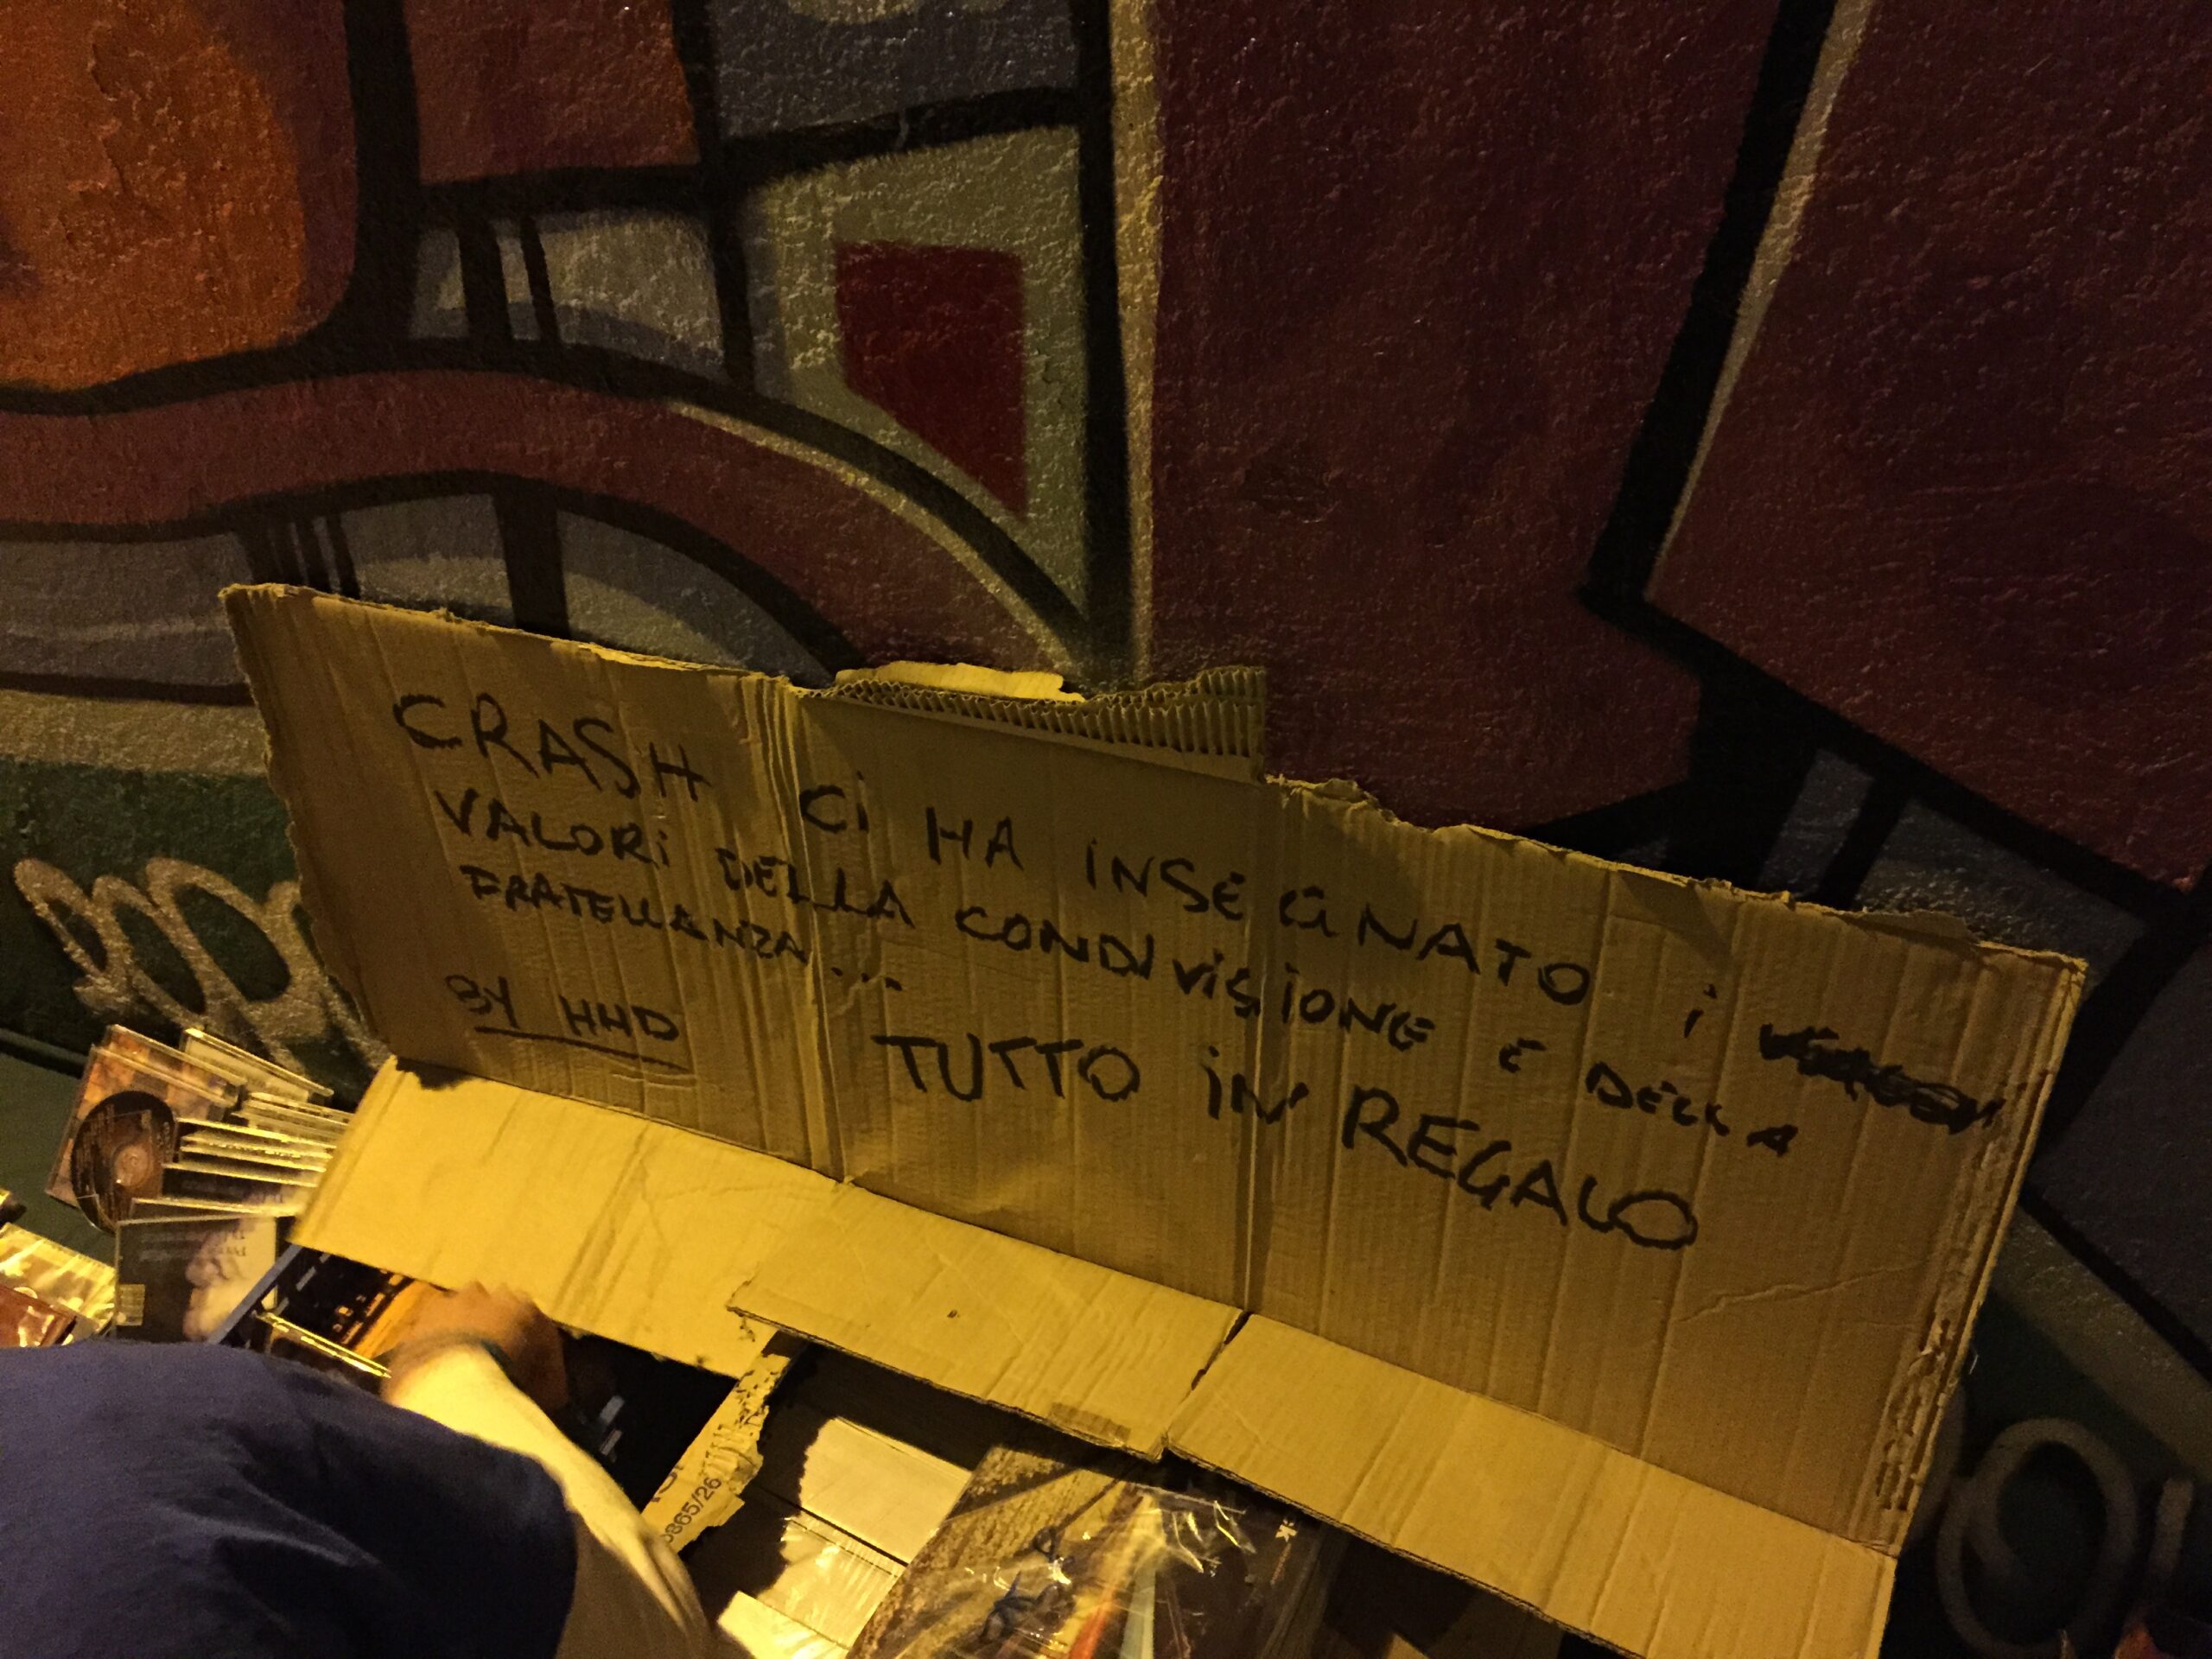 CRASH Ci HA iNSEGNATO i
VALORi DELLA CONDIViSiONE E DELLA
FRATELLANZA...
BY HHD
TUTTO iN REGALO
0865/26